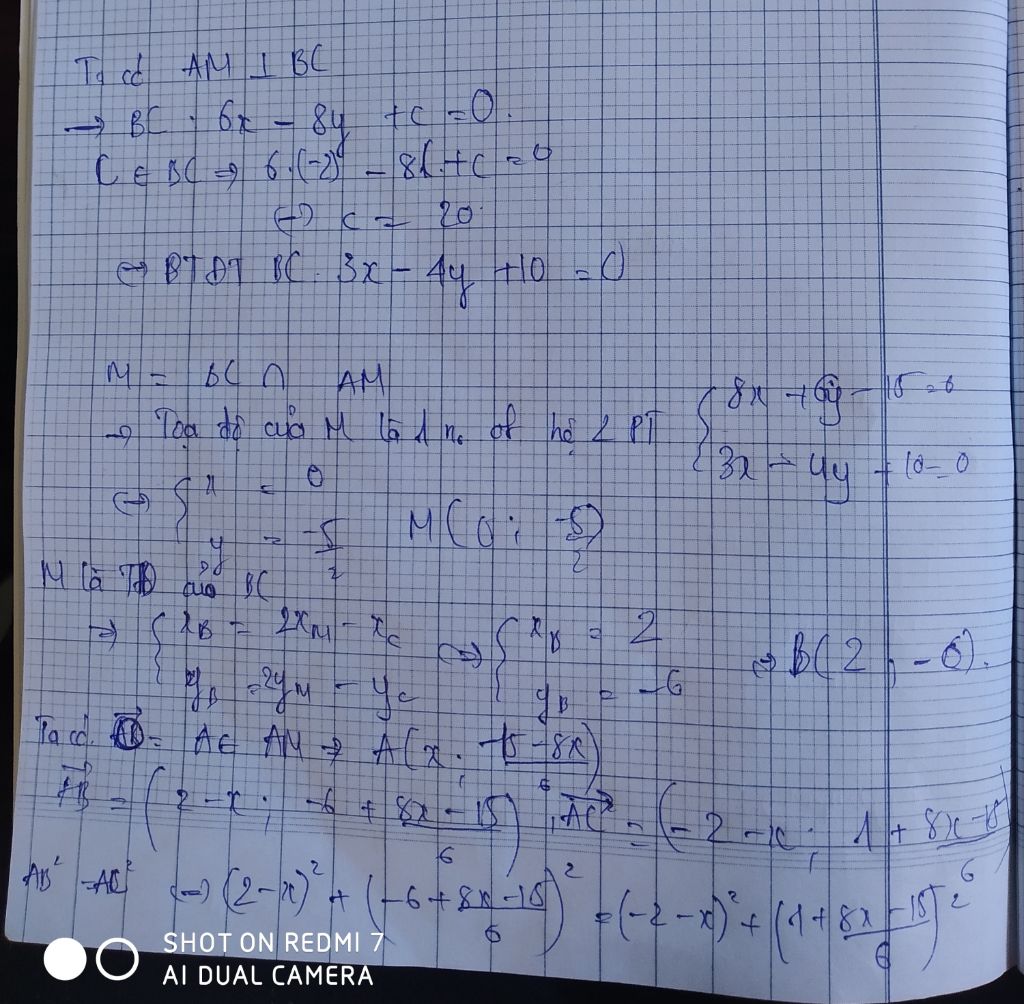 Ta có AM ⊥ BC
→ BC : 6x - 8y + c = 0.
C ∈ BC ⇒ 6.(-2) - 8.1 + c = 0
⇔ c = 20.
⇔ PTĐT BC : 3x - 4y + 10 = 0
M = BC ∩ AM
→ Toạ độ của M là 1 n₀ of hệ 2 PT { 8x + 6y - 15 = 0
3x - 4y + 10 = 0
⇔ { x = 0
y = -5/2 M(0 ; -5/2)
M là TĐ của BC
⇒ { x_B = 2x_M - x_C
y_B = 2y_M - y_C ⇔ { x_B = 2
y_B = -6 ⇒ B(2 ; -6).
Ta có. = A ∈ AM ⇒ A(x ; (-15 - 8x)/6)
AB = (2 - x ; -6 + (8x - 15)/6) ; AC = (-2 - x ; 1 + (8x - 15)/6)
AB² = AC² ⇔ (2 - x)² + (-6 + (8x - 15)/6)² = (-2 - x)² + (1 + (8x - 15)/6)²
SHOT ON REDMI 7
AI DUAL CAMERA